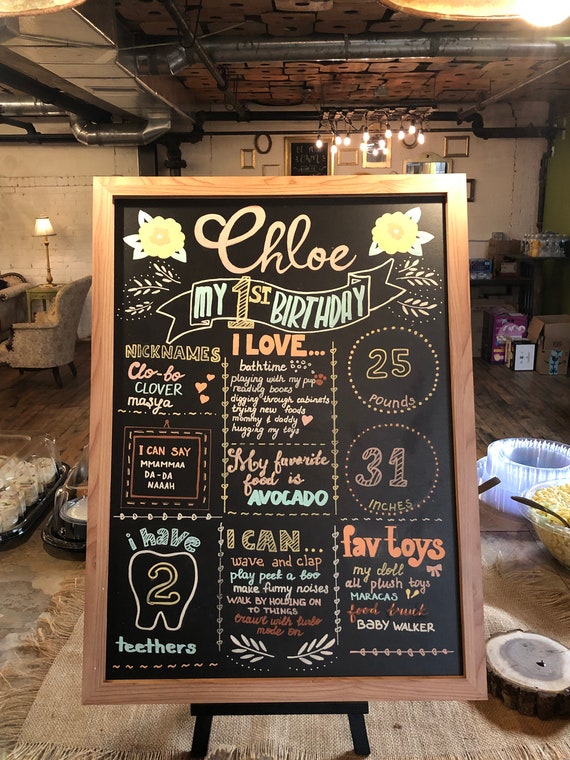 Chloe
MY 1ST BIRTHDAY
NICKNAMES
Clo-bo
CLOVER
masya
I LOVE...
bathtime
playing with my pup
reading books
digging through cabinets
trying new foods
mommy & daddy
hugging my toys
25
POUNDS
I CAN SAY
MMAMMAA
DA-DA
NAAAH
My favorite
food is
AVOCADO
31
INCHES
i have
2
teethers
I CAN...
wave and clap
play peek a boo
make funny noises
WALK BY HOLDING ON
TO THINGS
crawl with turbo
mode on
fav toys
my doll
all plush toys
MARACAS
food truck
BABY WALKER